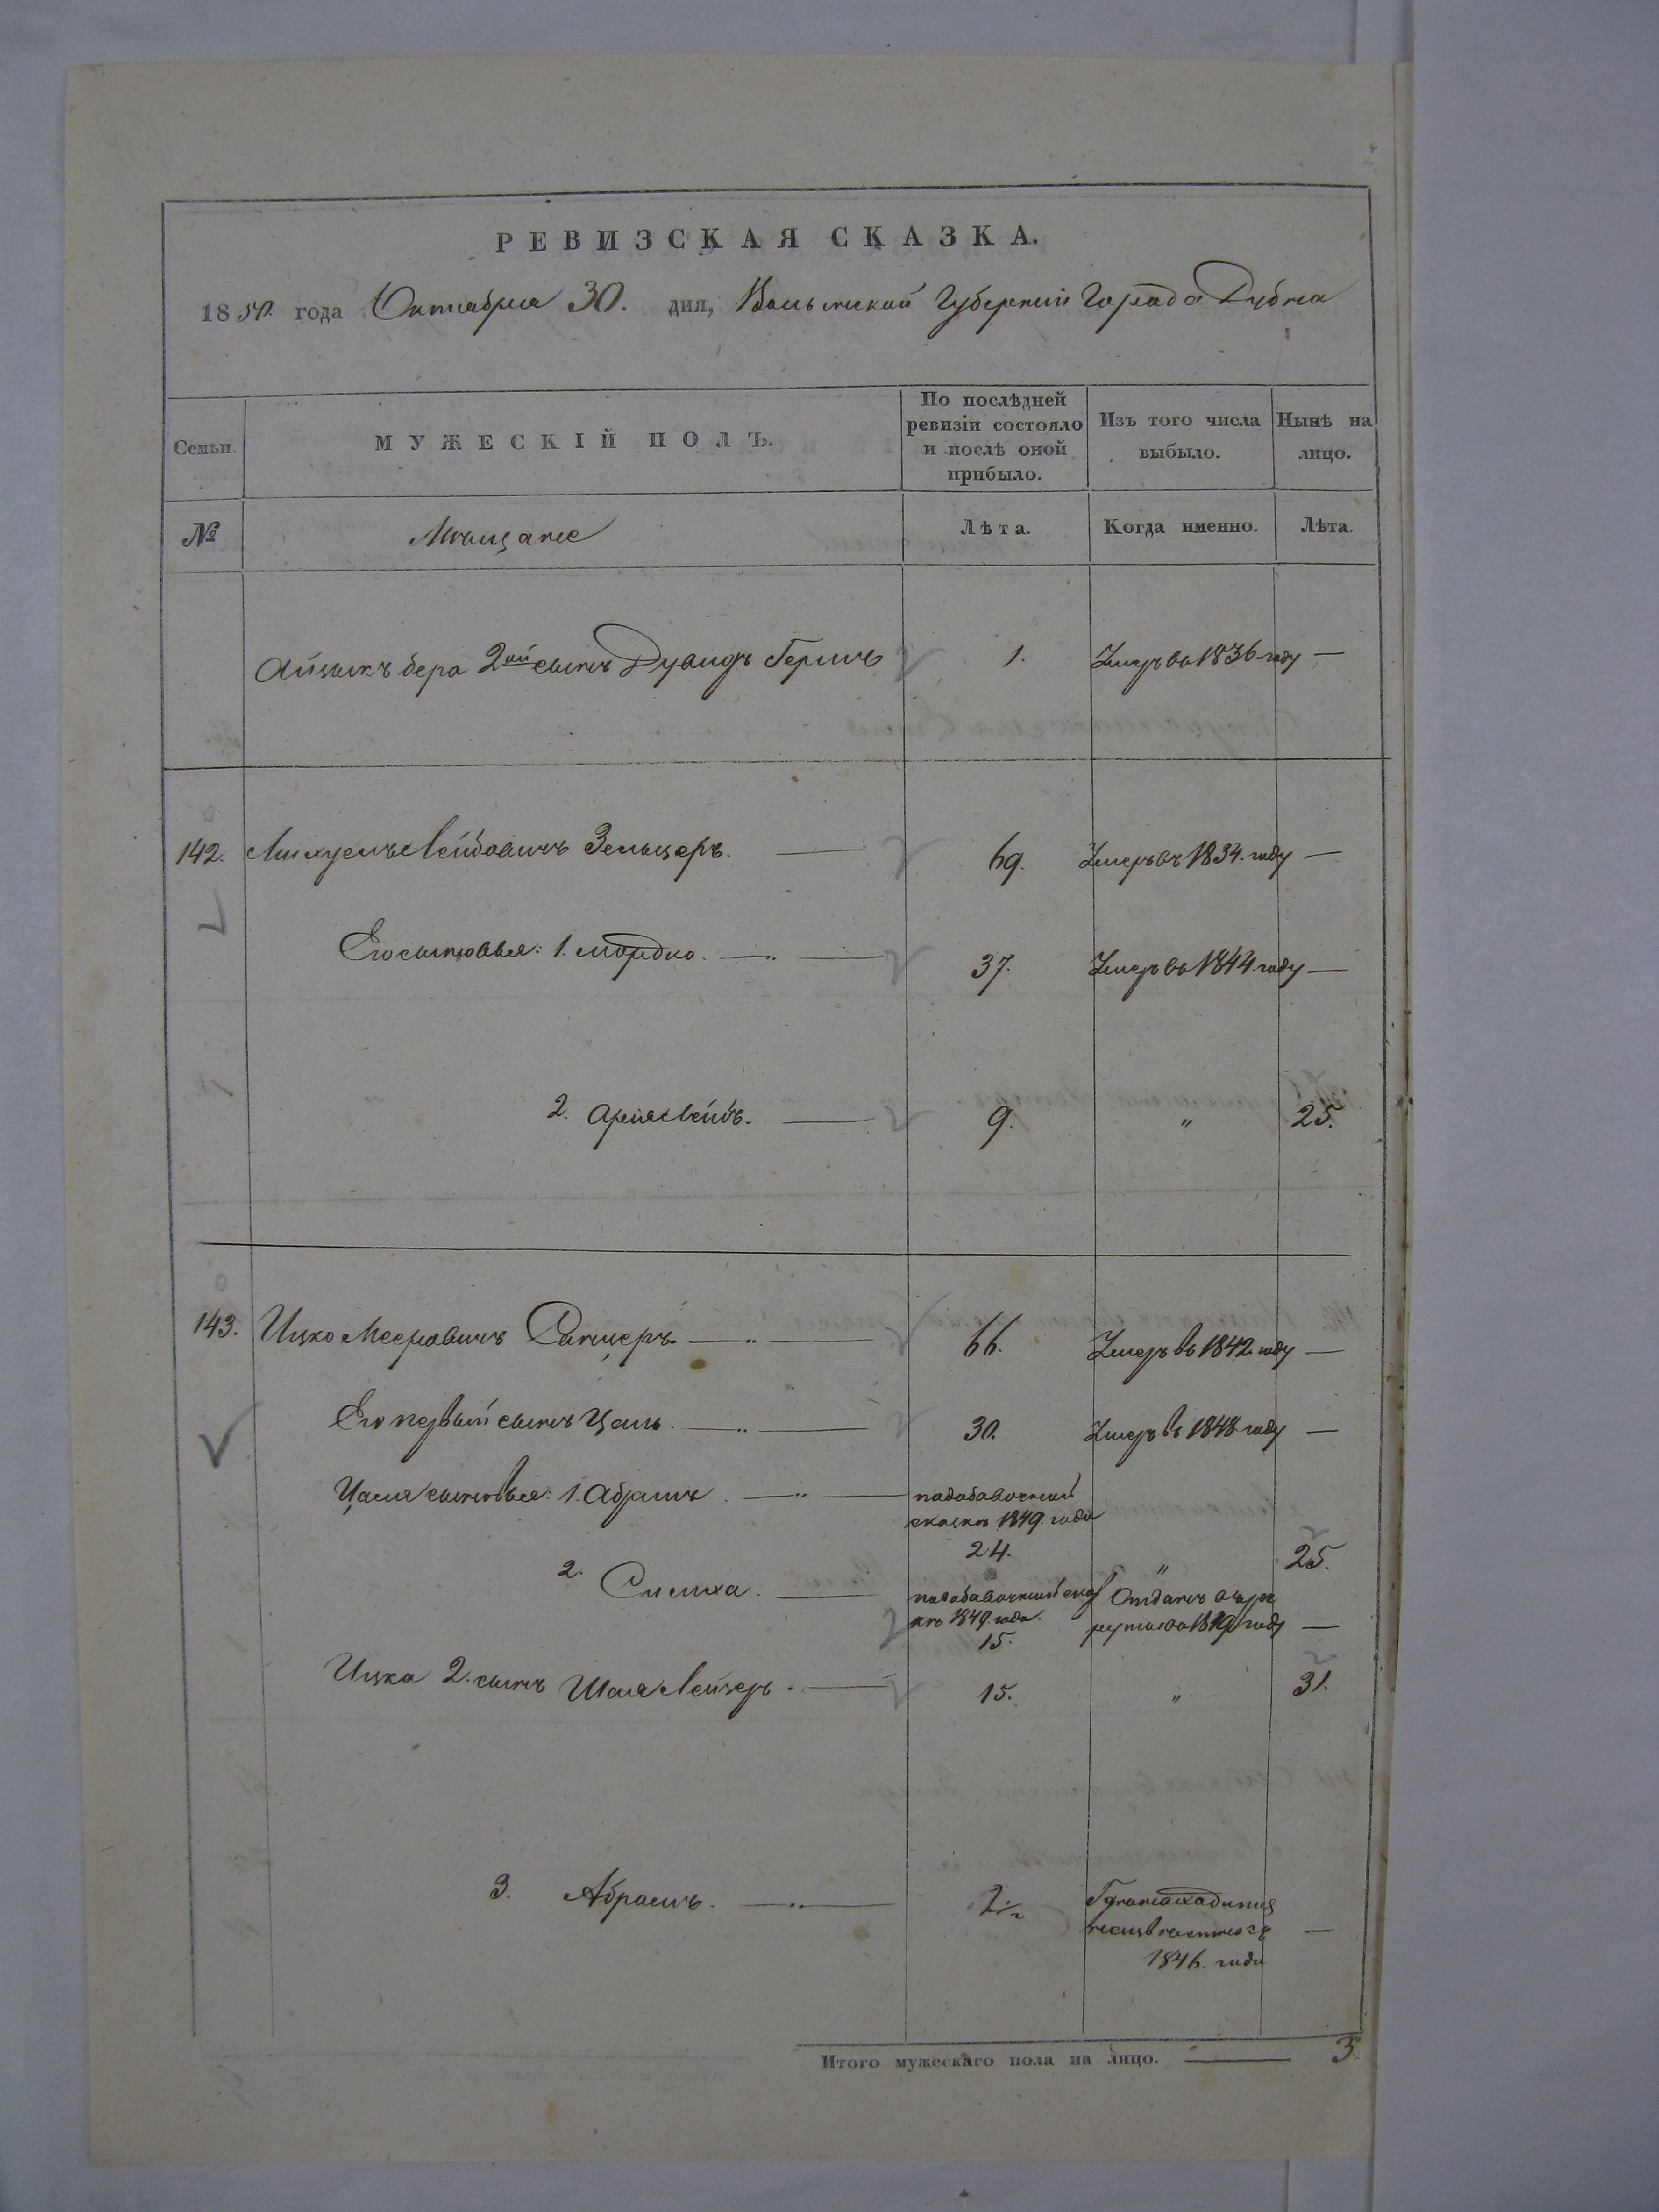 РЕВИЗСКАЯ СКАЗКА.
1850. года Октября 30. дня, Волынской Губернии Города Дубна
Семьи.
МУЖЕСКІЙ ПОЛЪ.
По послѣдней ревизіи состояло и послѣ оной прибыло.
Изъ того числа выбыло.
Нынѣ на лицо.
№
Мѣщане
Лѣта.
Когда именно.
Лѣта.
Айзыкъ бера 2ой сынъ Дувидъ Гершъ 1. Умеръ въ 1836 году —
142. Лейбовичъ Зельцеръ. — 69. Умеръ въ 1834. году —
Его сыновья: 1. Мордко. — 37. Умеръ въ 1844. году —
2. Арія Лейбъ. — 9. " 25.
143. Ицко Мееровичъ — 66. Умеръ въ 1842 году —
Его первый сынъ Цаль. — 30. Умеръ въ 1848 году —
Цаля сыновья: 1. Абрамъ. — подобавочной
сказкѣ 1849. года
24. " 25.
2. Симха. — подобавочной ска Отданъ въ ре
зкѣ 1849. года. круты въ 1849 году —
15.
Ицка 2. сынъ Шая Лейзеръ. — 15. " 31.
3. Абрамъ. — 1/2
неизвѣстно съ —
1846. года
Итого мужескаго пола на лицо. — 3